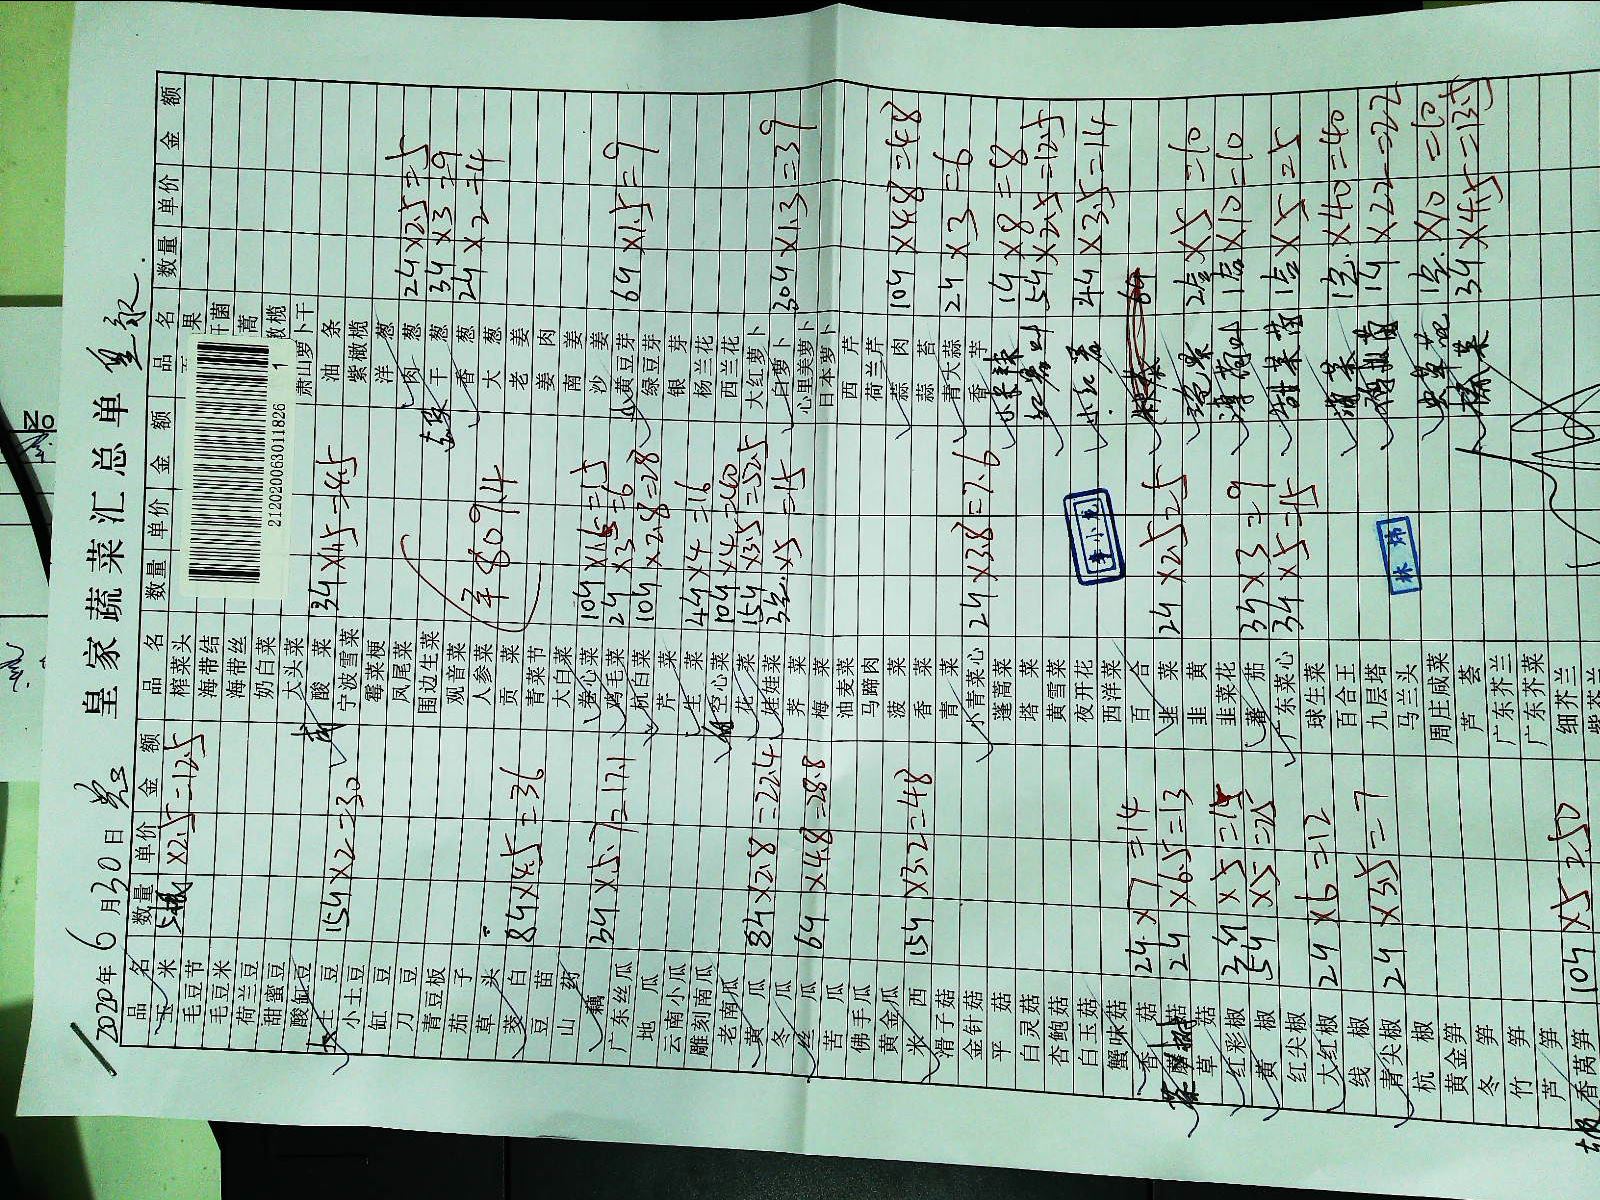 皇家蔬菜汇总单
2020年6月30日
212020063011826 1
品名 数量 单价 金额 品名 数量 单价 金额 品名 数量 单价 金额
玉米 ×2.5=12.5
毛豆节
毛豆米
荷兰豆
甜蜜豆
酸缸豆
土豆 15斤×2=30
小土豆
缸豆
刀豆
青豆板
茄子
草头
茭白 8斤×4.5=36
豆苗
山药
藕 3斤×5.7=17.1
广东丝瓜
地瓜
云南小瓜
雕刻南瓜
老南瓜
黄瓜 8斤×2.8=22.4
冬瓜
丝瓜 6斤×4.8=28.8
苦瓜
佛手瓜
黄金瓜
米西 15斤×3.2=48
滑子菇
金针菇
平菇
白灵菇
杏鲍菇
白玉菇
蟹味菇
香菇 2斤×7=14
蘑菇 2斤×6.5=13
草菇
红彩椒 3斤×5=15
黄椒 5斤×5=25
红尖椒
大红椒 2斤×6=12
线椒
青尖椒 2斤×3.5=7
杭椒
黄金笋
冬笋
竹笋
芦笋
香莴笋 10斤×5=50
榨菜头
海带结
海带丝
奶白菜
大头菜
酸菜 3斤×1.5=4.5
宁波雪菜
霉菜梗
凤尾菜
围边生菜
观音菜
人参菜
贡菜
青菜节
大白菜
卷心菜 10斤×1.5=15
鸡毛菜 2斤×3=6
杭白菜 10斤×2.8=28
芹菜
生菜 4斤×4=16
空心菜 10斤×4=40
花菜 15斤×3.5=52.5
娃娃菜 3包×5=15
荠菜
梅菜
油麦菜
马蹄肉
菠菜
香菜
青菜
小青菜心 2斤×3.8=7.6
蓬蒿菜
塔菜
黄雪菜
夜开花
西洋菜
百合
韭菜 2斤×2.5=5
韭黄
韭菜花
蕃茄 3斤×3=9
广东菜心 3斤×5=15
球生菜
百合王
九层塔
马兰头
周庄咸菜
芦荟
广东芥兰
广东芥菜
细芥兰
紫芥兰
¥809.4
李小龙
林炜
萧山萝卜干
油条
紫橄榄
洋葱
肉葱 2斤×2.5=5
干葱 3斤×3=9
香葱 2斤×2=4
大葱
老姜
姜肉
南姜
沙姜
黄豆芽 6斤×1.5=9
绿豆芽
银芽
杨兰花
西兰花
大红萝卜
白萝卜 30斤×1.3=39
心里美萝卜
日本萝卜
西芹
荷兰芹
蒜肉 10斤×4.8=48
蒜苔
青大蒜 2斤×3=6
香芋
小米辣 1斤×8=8
5斤×2.5=12.5
4斤×3.5=14
2盒×5=10
薄荷叶 1盒×10=10
1盒×5=5
1包×40=40
1斤×22=22
1包×10=10
3斤×4.5=13.5